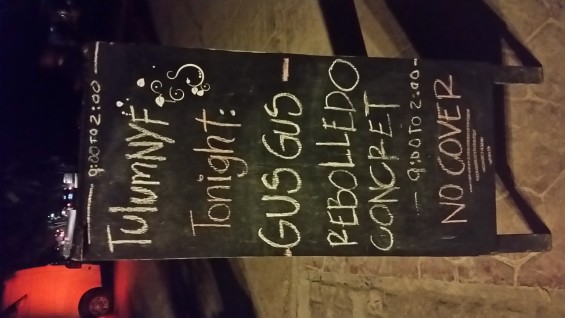 — 9:00 TO 2:00 —
TulumNYF
Tonight:
GUS GUS -
REBOLLEDO
CONCRET
- 9:00 TO 2:00 -
NO COVER